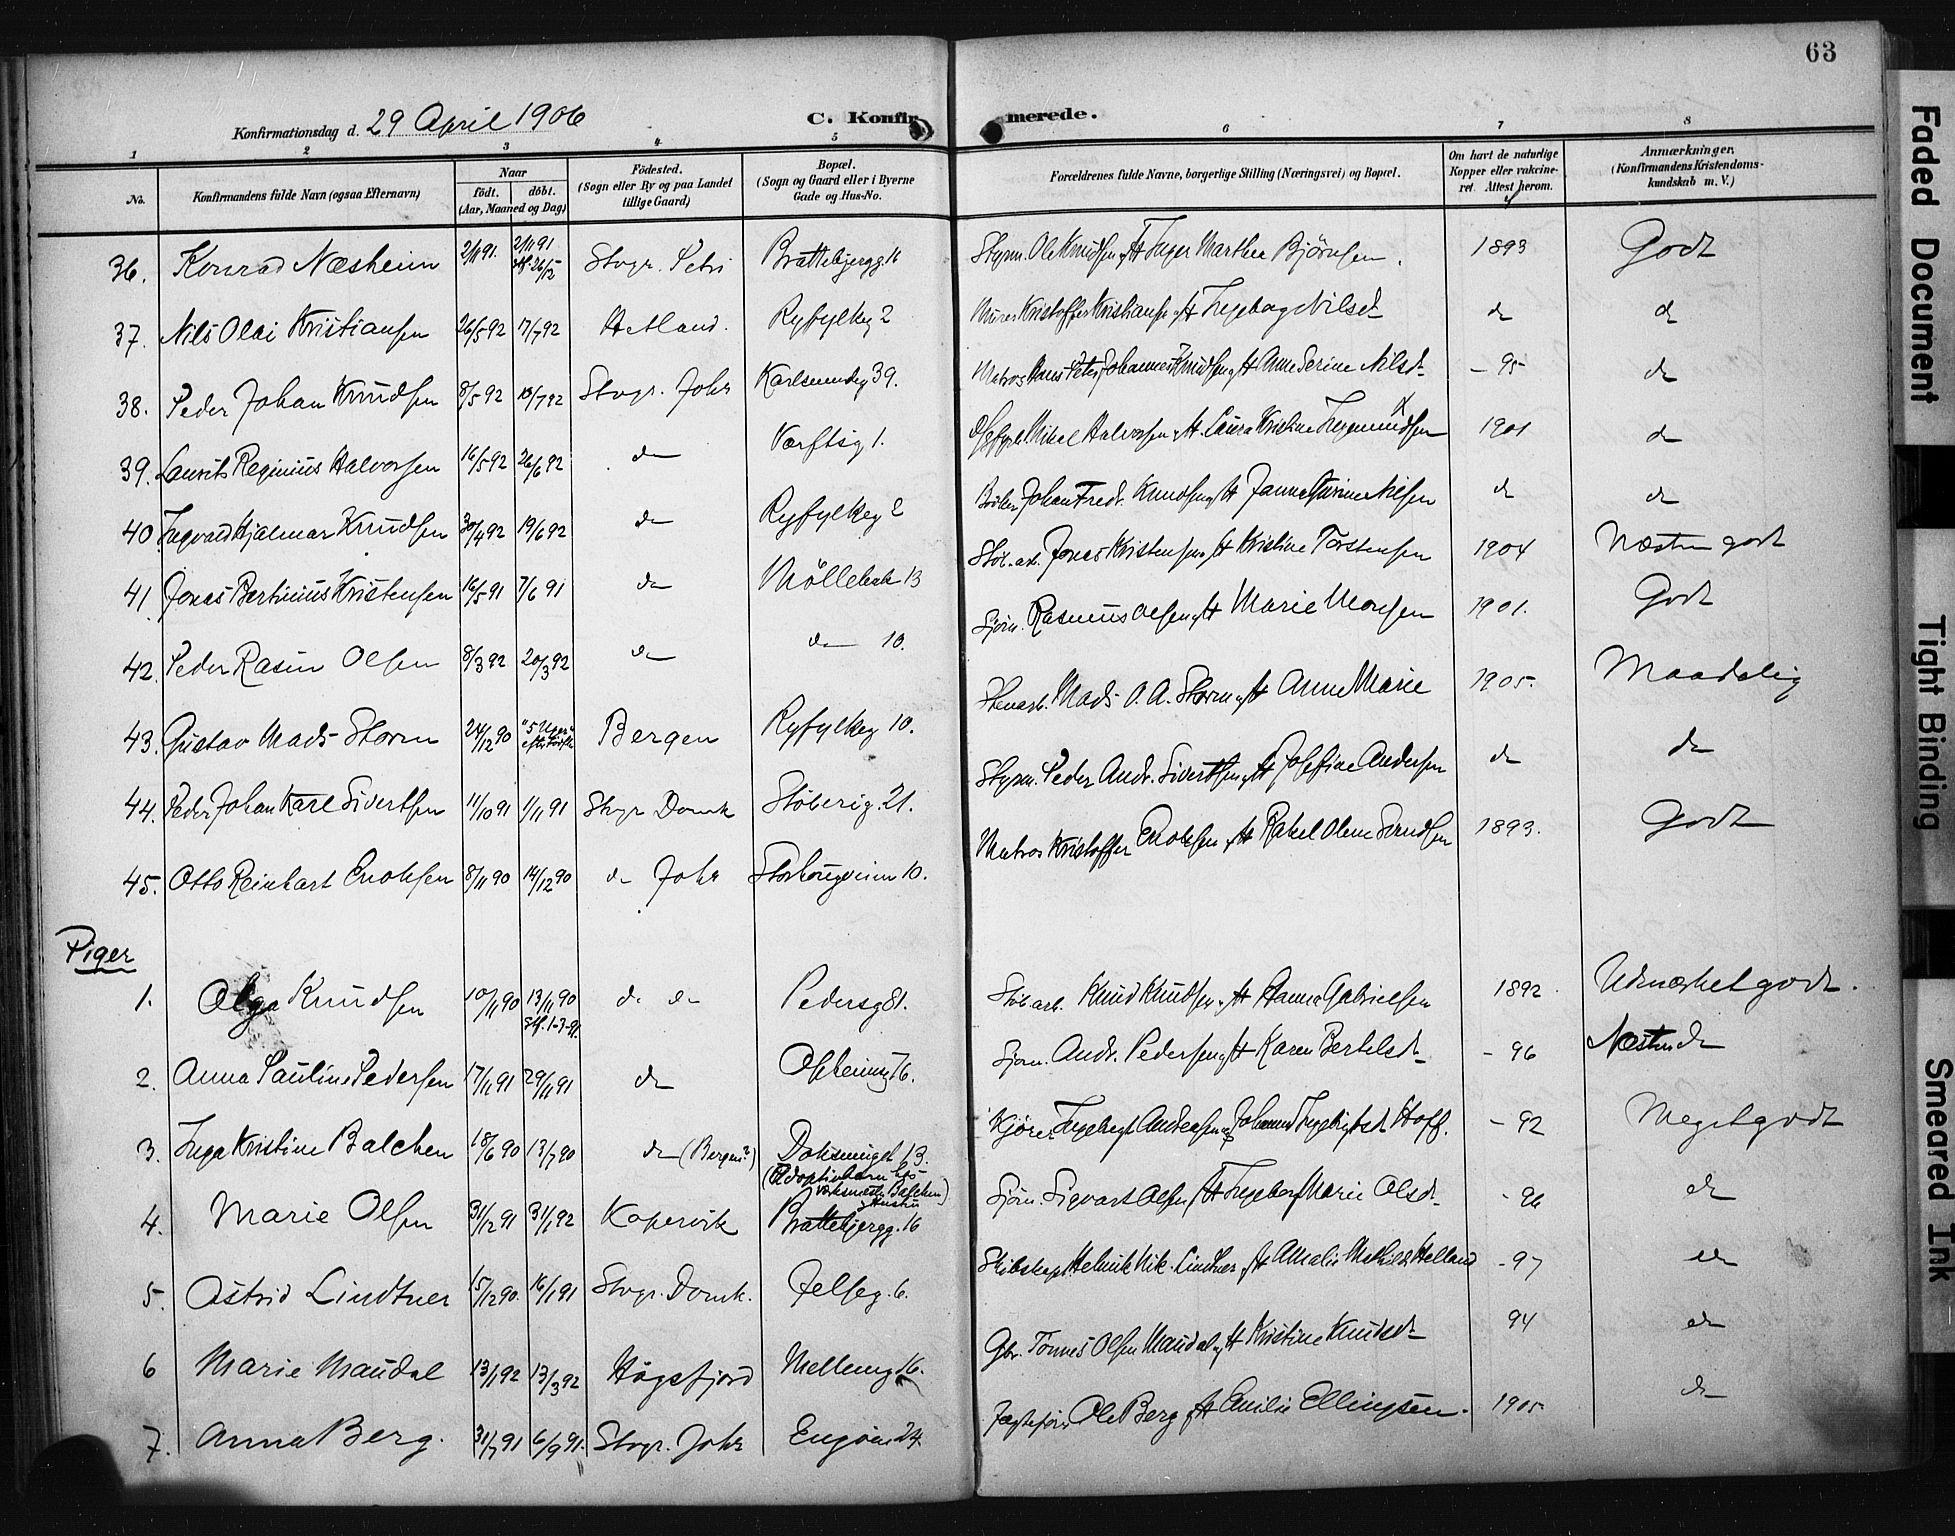 63
Konfirmationsdag d. 29 April 1906
C. Konfirmerede.
1 2 3 4 5 6 7 8
No.
Konfirmandens fulde Navn (ogsaa Efternavn)
Naar
födt. döbt.
(Aar, Maaned og Dag)
Födested.
(Sogn eller By og paa Landet
tillige Gaard)
Bopæl.
(Sogn og Gaard eller i Byerne
Gade og Hus-No.
Forældrenes fulde Navne, borgerlige Stilling (Næringsvei) og Bopæl.
Om havt de naturlige
Kopper eller vakcine-
ret. Attest herom.
Anmærkninger.
(Konfirmandens Kristendoms-
kundskab m. V.)
36. Konrad Næsheim 2/11 91. 2/11 91 Stvgr. Petri Brattebjergg. Styrm. Ole Knudsen & H Inger Marthea Björnsen. 1893 Godt
37. Nils Olai Kristiansen 26/5 92 17/7 92 Hetland. Ryfylkeg 2 Murer Kristoffer Kristiansen & H Ingeborg Nilsd. do do
38. Peder Johan Knudsen 8/5 92 10/7 92 Stvgr. Johs Karlsmindeg 39. Matros Hans Peter Johannes Knudsen & H Anne Serine Nilsd. - 95 do
39. Laurits Reginius Halvorsen 16/5 92 26/6 92 do Værftsg 1. Mikal Halvorsen & H. Laura Kristine Ingemundsen 1901 do
40 Ingvald Hjalmar Knudsen 30/4 92 19/6 92 do Ryfylkeg 2 Johan Fredr. Knudsen & H Nilsen do do
41. Jonas Bertinius Kristensen 16/5 91 7/6 91 do Möllebak 13 Stöb. arb. Jonas Kristensen & H Kristine Torstensen 1904 Næsten godt
42. Peder Rasin Olsen 8/3 92 20/3 92 do do 10. Sjöm. Rasmus Olsen & H Marie Monsen 1901. Godt
43. Gustav Mads Storm 24/12 90 Bergen Ryfylkeg 10. Stenarb. Mads O. A. Storm & H Anne Marie 1905. Maadelig
44. Peder Johan Karl Sivertsen 11/10 91 1/11 91 Stvgr Domk Stöberig. 21. Styrm. Peder Andr. Sivertsen & H Josefine Andersen do do
45. Otto Reinhart Enoksen 8/11 90 14/12 90 do Johs Storhougveien 10. Matros Kristoffer Enoksen & H Rakel Oline Svendsen 1893. Godt
Piger
1. Olga Knudsen 10/11 90 13/11 90 do do Pedersg 81. Stöb arb. Knud Knudsen & H Hanna Gabrielsen 1892 Udmærket godt.
Stf. 1-3-91.
2. Anna Pauline Pedersen 17/11 91 29/11 91 do 76. Sjöm. Andr. Pedersen & H Karen Bertelsd. - 96 Næsten do
3. Inga Kristine Balchen 18/6 90 13/7 90 do (Bergen?) 13. Kjörer Ingebregt Andreassen & Johanna Ingebrigtsd. Hoff. - 92 Meget godt
(Adoptivbarn hos
Balchen)
& Hustru
4. Marie Olsen 31/12 91 31/1 92 Kopervik Brattebjergg. 16 Sjöm. Sigvart Olsen & H Ingeborg Marie Olsd. - 96 do
5. Astrid Lindtner 15/12 90. 16/1 91 Stvgr. Domk. Jelseg. 6. Skibskapt Helmik Nik. Lindtner & H Amalie Mathilde Helland - 97 do
6 Marie Maudal 13/1 92 13/3 92 Högsfjord Mellemg 16. Gbr. Tönnes Olsen Maudal & H Kristine Knudsd. 94 do
7. Anna Berg. 31/7 91 6/9 91. Stvgr. Johs Engöen 24. Jægteförer Ole Berg & H Emilie Ellingsen. 1905 do
Faded Document
Tight Binding
Smeared Ink